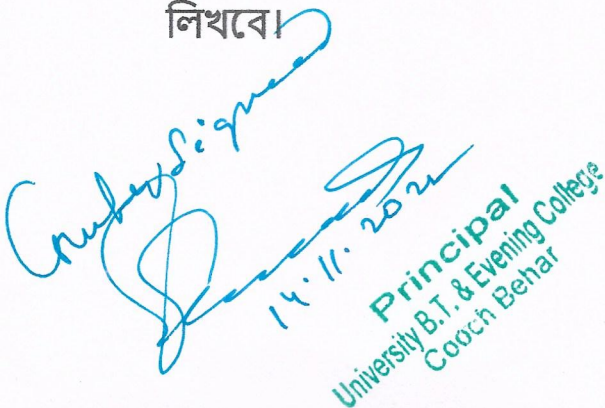 লিখবে।
Counter Signed
14.11.2021
Principal
University B.T. & Evening College
Cooch Behar